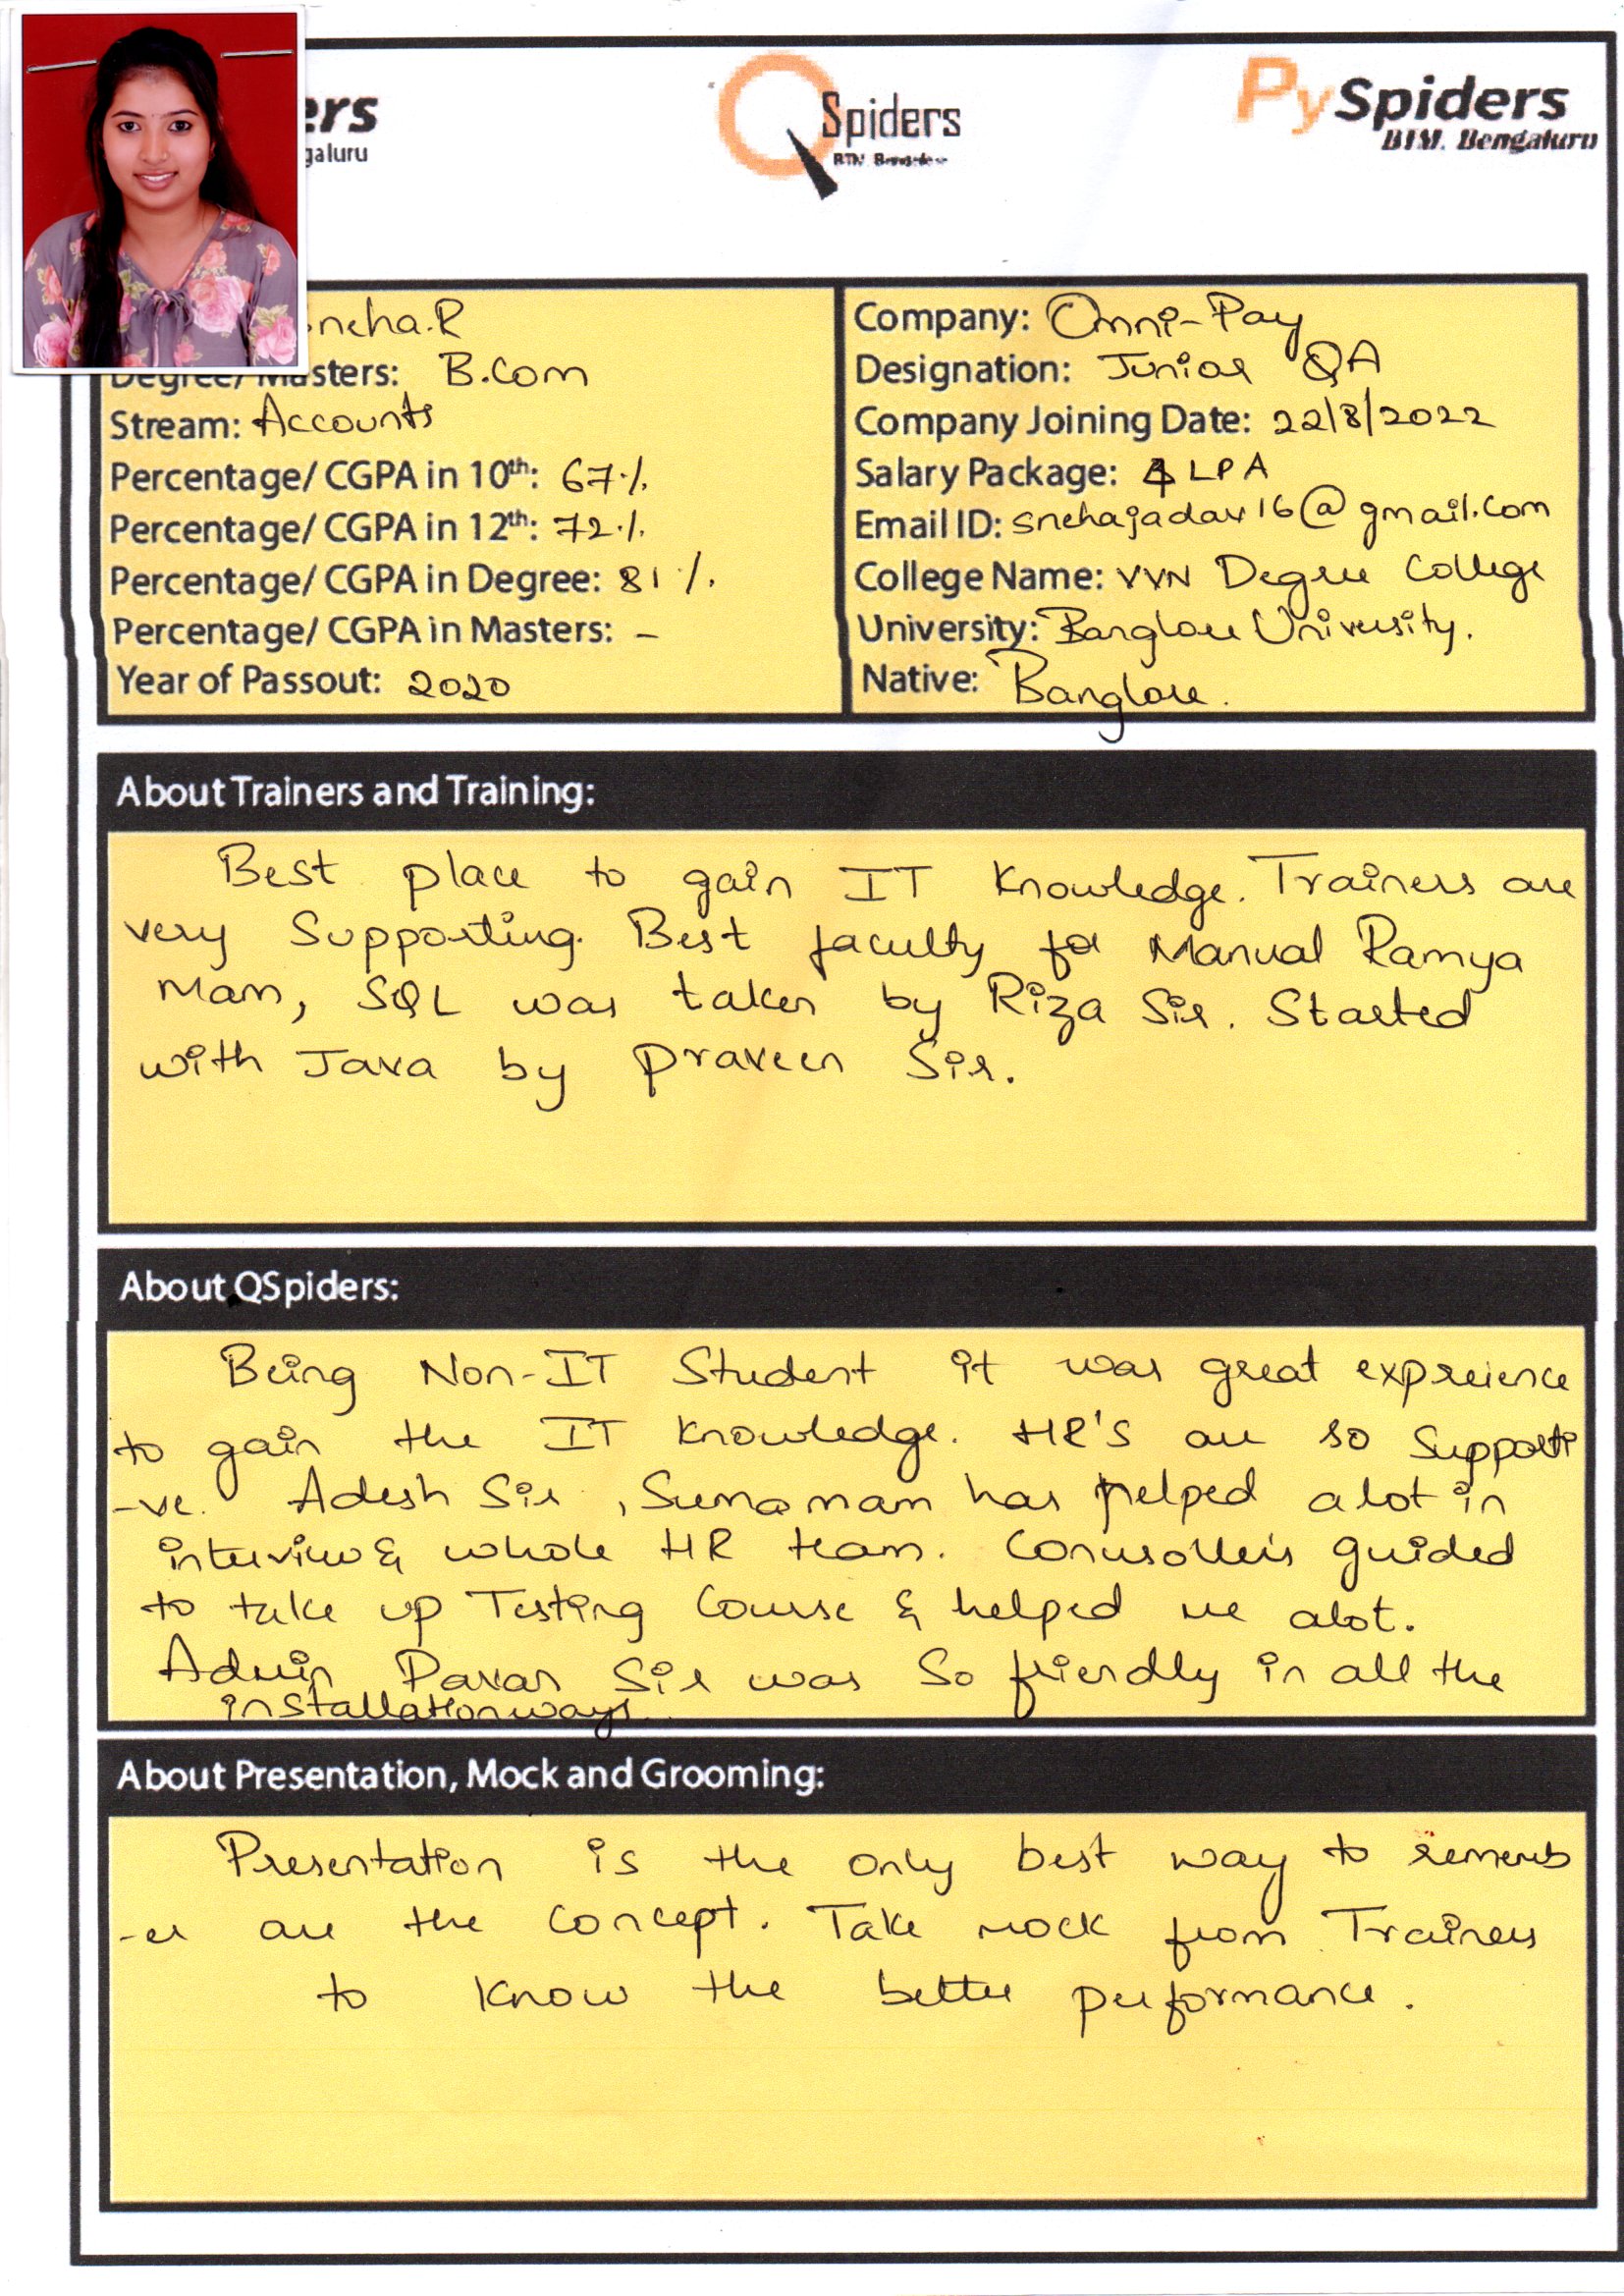 ers
galuru
QSpiders
BTM Bengaluru
PySpiders
BTM. Bengaluru
Sneha.R
Degree/ Masters: B.Com
Stream: Accounts
Percentage/ CGPA in 10th: 67%
Percentage/ CGPA in 12th: 72%
Percentage/ CGPA in Degree: 81%
Percentage/ CGPA in Masters: -
Year of Passout: 2020
Company: Omni-Pay
Designation: Junior QA
Company Joining Date: 22/8/2022
Salary Package: 4 LPA
Email ID: snehajadav16@gmail.com
College Name: VVN Degree College
University: Banglore University.
Native: Banglore.
About Trainers and Training:
Best place to gain IT Knowledge. Trainers are
very Supporting. Best faculty for Manual Ramya
Mam, SQL was taken by Riza Sir. Started
with Java by Praveen Sir.
About QSpiders:
Being Non-IT Student it was great expreience
to gain the IT Knowledge. HR'S are so Supporti
-ve. Adesh Sir, Suma mam has helped alot in
interview & whole HR team. guided
to take up Testing Course & helped me alot.
Admin Pavan Sir was So friendly in all the
installation ways.
About Presentation, Mock and Grooming:
Presentation is the only best way to rememb
-er are the concept. Take mock from Trainers
to know the better performance.